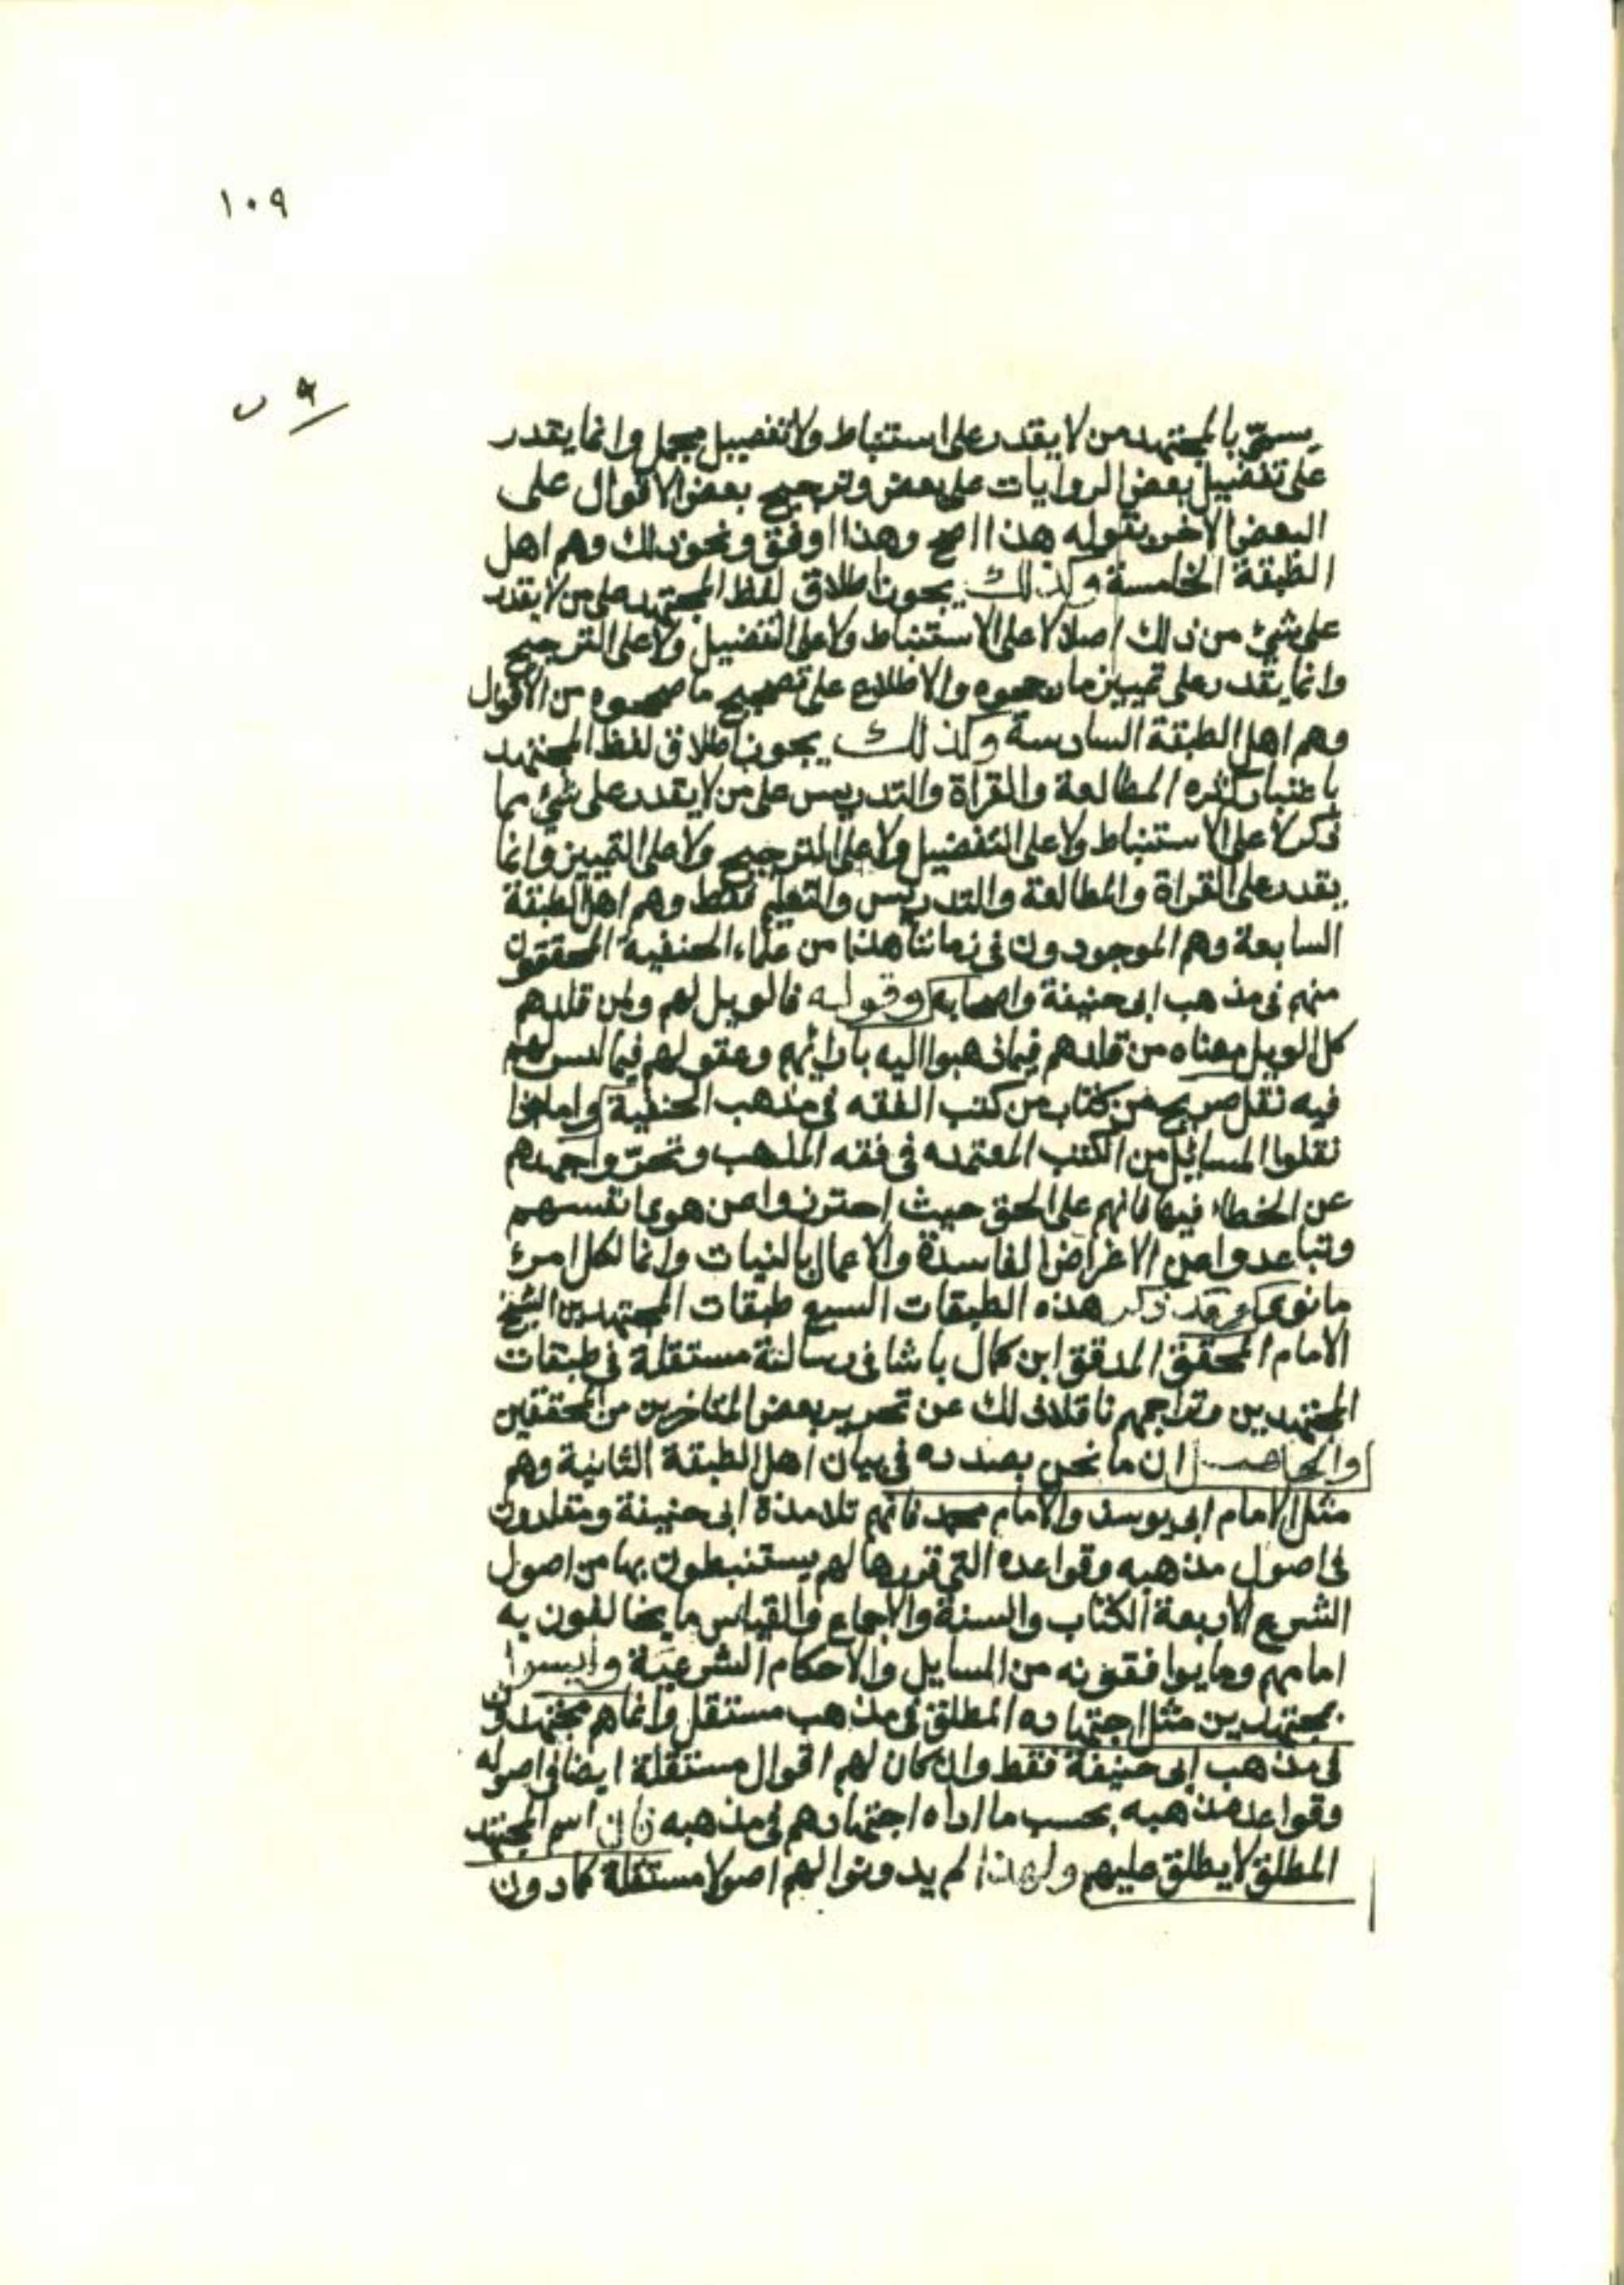 ١٠٩
٩ ب
يسمى بالمجتهد من لا يقدر على استنباط ولا تفصيل مجمل وانما يقدر
على تفضيل بعض الروايات على بعض وترجيح بعض الاقوال على
البعض الاخر بقوله هذا اصح وهذا اوفق ونحو ذلك وهم اهل
الطبقة الخامسة وكذلك يجوز اطلاق لفظ المجتهد على من لا يقدر
على شئ من ذلك اصلا لا على الاستنباط ولا على التفضيل ولا على الترجيح
وانما يقدر على تمييز ما رجحوه والاطلاع على تصحيح ما صححوه من الاقوال
وهم اهل الطبقة السادسة وكذلك يجوز اطلاق لفظ المجتهد
باعتبار كثره المطالعة والقراة والتدريس على من لا يقدر على شئ مما
ذكر لا على الاستنباط ولا على التفضيل ولا على الترجيح ولا على التمييز وانما
يقدر على القراة والمطالعة والتدريس والتعليم فقط وهم اهل الطبقة
السابعة وهم الموجودون في زماننا هذا من علماء الحنفية المحققون
منهم في مذهب ابى حنيفة واصحابه وقوله فالويل لهم ولمن قلدهم
كل الويل معناه من قلدهم فيما ذهبوا اليه بارائهم وعقولهم فيما ليس لهم
فيه نقل صريح من كتاب من كتب الفقه في مذهب الحنفية واما اذا
نقلوا المسائل من الكتب المعتمده في فقه المذهب وتحروا جهدهم
عن الخطاء فيها فانهم على الحق حيث احترزوا عن هوى انفسهم
وتباعدوا عن الاغراض الفاسدة والاعمال بالنيات وانما لكل امرئ
ما نوى وقد ذكر هذه الطبقات السبع طبقات المجتهدين الشيخ
الامام المحقق المدقق ابن كمال باشا في رسالة مستقلة في طبقات
المجتهدين وتراجمهم ناقلا ذلك عن تحرير بعض المتاخرين من المحققين
والحاصل ان ما نحن بصدده في بيان اهل الطبقة الثانية وهم
مثل الامام ابى يوسف والامام محمد فانهم تلامذة ابى حنيفة ومقلدون
في اصول مذهبه وقواعده التي قررها لهم يستنبطون بها من اصول
الشرع الاربعة الكتاب والسنة والاجماع والقياس ما يخالفون به
امامهم وما يوافقونه من المسايل والاحكام الشرعية وليسوا
بمجتهدين مثل اجتهاده المطلق في مذهب مستقل وانما هم مجتهدون
في مذهب ابى حنيفة فقط وان كان لهم اقوال مستقلة ايضا في اصوله
وقواعد مذهبه بحسب ما اداه اجتهادهم في مذهبه فان اسم المجتهد
المطلق لا يطلق عليهم ولهذا لم يدونوا لهم اصولا مستقلة كما دون